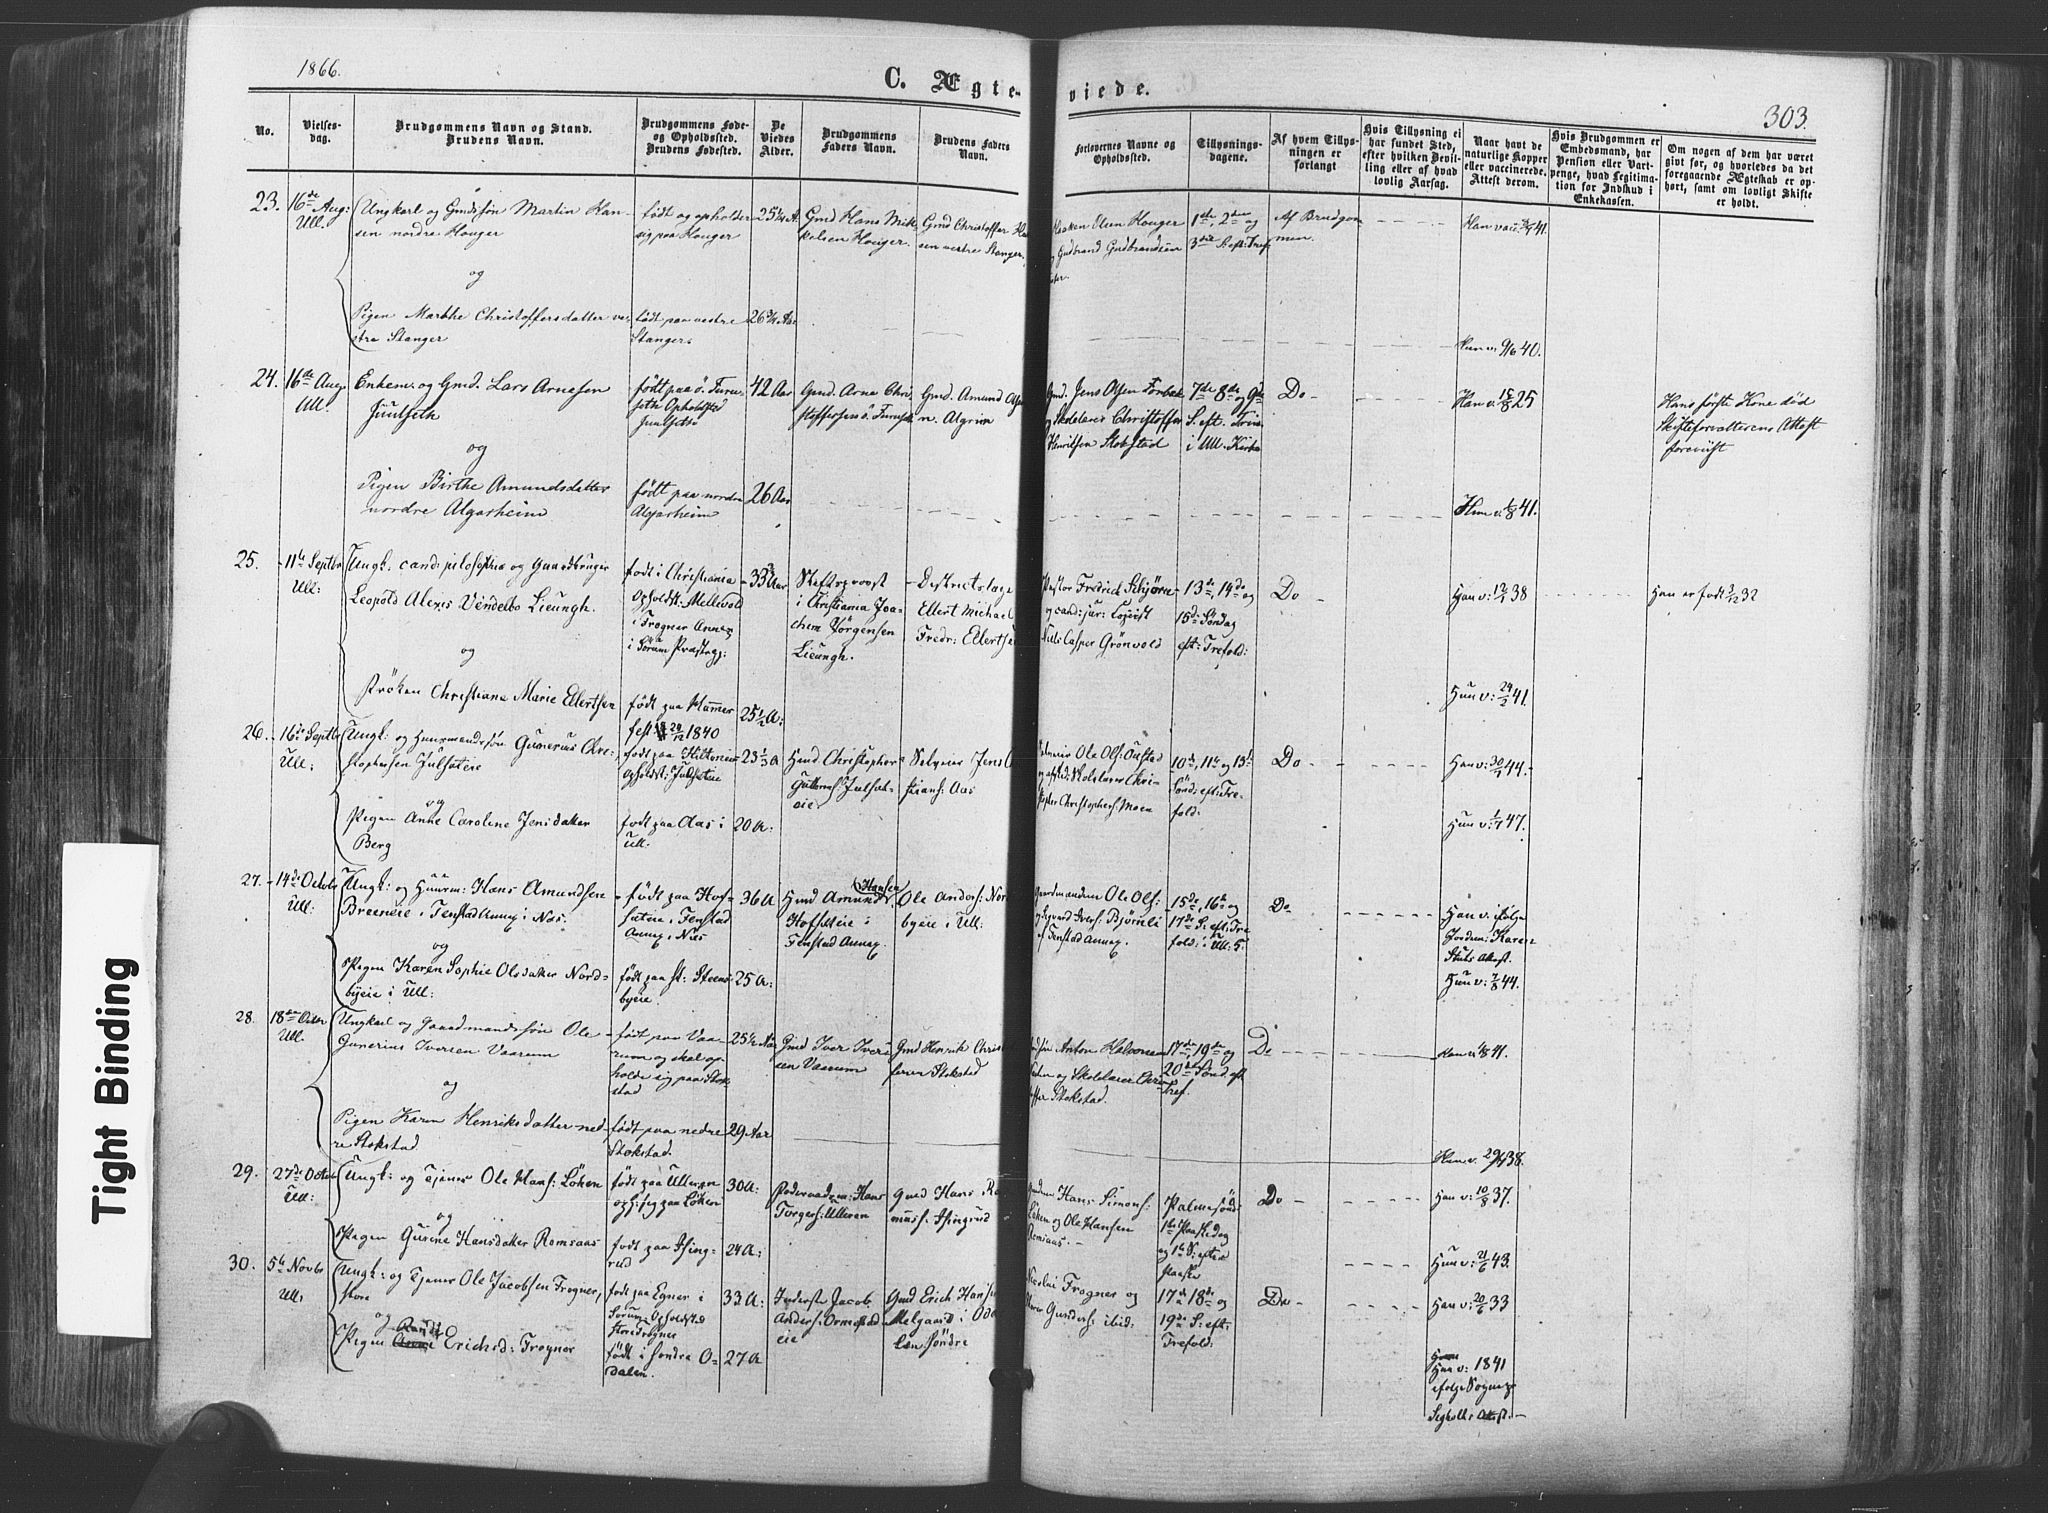 1866.
C. Ægte- viede.
303.
No.
Vielses-
dag.
Brudgommens Navn og Stand.
Brudens Navn.
Brudgommens Føde-
og Opholdssted.
Brudens Fødested.
De
Viedes
Alder.
Brudgommens
Faders Navn.
Brudens Faders
Navn.
Forlovernes Navne og
Opholdssted.
Tillysnings-
dagene.
Af hvem Tillys-
ningen er
forlangt
Hvis Tillysning ei
har fundet Sted,
efter hvilken Bevil-
ling eller af hvad
lovlig Aarsag.
Naar havt de
naturlige Kopper
eller vaccinerede.
Attest derom.
Hvis Brudgommen er
Embedsmand, har
Pension eller Vart-
penge, hvad Legitima-
tion for Indskud i
Enkekassen.
Om nogen af dem har været
gift før, og hvorledes da det
foregaaende Ægteskab er op-
hørt, samt om lovligt Skifte
er holdt.
23. 16de Aug:
Ull.
Ungkarl og Gmdssøn Martin Han-
sen nordre Houger
og
Pigen Marthe Christoffersdatter ve-
stre Stanger
født og opholder
sig paa Houger
født paa vestre
Stanger.
25 1/4 A.
26 3/4 Aar
Gmd Hans Mik-
kelsen Houger.
Gmd Christoffer
sen vestre Stanger.
Haaken Elsen Houger
Gudbrand Gudbrandsen
1ste, 2den og
3die S. eft: Tref
Af Brudgom-
men.
Han vac: 41.
Hun v: 9/6 40.
24. 16de Aug.
Ull.
Enkem. og Gmd. Lars Arnesen
Juulseth
og
Pigen Birthe Amundsdatter
nordre Algarheim
født paa ö. Furu-
seth Opholdsted
Juulseth
født paa nordre
Algarheim
42 Aar
26 Aar
Gmd. Arne Chri-
stoffersen ö. Furuseth
Gmd. Amund
n. Algrim
Gmd. Jens Olsen Forbek
og Skolelærer Christoffer
Henriksen Stokstad
7de 8de og 9de
S. eft. Trin.
i Ull. Kirke
Do
Han v. 15/8 25
Hun v. 1/8 41.
Hans første Kone død
Skifteforvalterens Attest
foreviist
25. 11te Septbr
Ull:
Ungk: cand: pilosophiæ og Gaardbruger
Leopold Alexis Vendelbo Lieungh.
og
Frøken Christiane Marie Edertsen
født i Christiania
opholdst: Mellevold
i Frogner Annex
i Sørum Præstegj:
født paa Hammer-
fest 1840
33 Aar
25 1/2 A:
Stiftsprovst
i Christiania Joa-
chim Jörgensen
Lieungh.
Districtslæge
Ellert Michael
Fredr: Edertsen
Pastor Fredrick Schjørn
og cand: jur: Logist
Niels Casper Grönvold
13de, 14de og
15de Søndag
eft: Trefold:
Do
Han v: 12/7 38
Hun v: 24/2 41.
Han er født 3/12 32
26. 16de Septbr
Ull:
Ungk: og Huusmandssøn Gunerius Chri-
stophersen Julseteie
og
Pigen Anne Caroline Jensdatter
Berg
født paa
opholdst: Julseteie
født paa Aas i
Ull:
23 1/3 A
20 A:
Hmd Christopher
Guttorms: Julset-
eie
Selveier Jens
stians: Aas
Selveier Ole Ols: Onstad
og Skolelærer Chri-
stopher Christophers: Moen
10de, 11te og 13de
Sönd: eft: Tre-
fold:
Do
Han v: 30/7 44.
Hun v: 1/7 47.
27. 14de Octobr
Ull:
Ungk: og Huusm: Hans Amundsen
Breeneie i Fenstad Annex i Næs.
og
Pigen Karen Sophie Olsdatter Nord-
byeie i Ull:
født paa Hof-
seteie i Fenstad
Annex i Næs
født paa St: Steens-
byeie.
36 A
25 A:
Hmd Amund Hansen
Hofseteie i
Fenstad Annex
Ole Anders: Nord
byeie i Ull:
Gaardmændene Ole Ols:
og Sigvard Ivers: Bjørnli
af Fenstad Annex.
15de, 16de og
17de S: eft: Tre-
fold: i Ull:
Do
Han v. ifølge
Jordem: Karen
Stubs Attest.
Hun v: 7/8 44.
28. 18de Octbr
Ull.
Ungkarl og Gaardmandssøn Ole
Gunerius Iversen Vaarum
og
Pigen Karen Henriksdatter ned-
re Stokstad
født paa Vaa-
rum og skal op-
holde sig paa Stok-
stad
født paa nedre
Stokstad.
25 1/2 Aar
29 Aar
Gmd Iver Iver-
sen Vaarum
Gmd Henrik Christ
fersen Stokstad
Anton Halvorsen
og Skolelærer Chri-
stoffer Stokstad.
17de, 19de og
20de Sönd. eft
Tref.
Do
Han v: 41.
Hun v. 38.
29. 27de Octobr
Ull:
Ungk: og Tjener Ole Hans: Löken
og
Pigen Gurine Hansdatter Romsaas
født paa Ulleren
oph: sig paa Löken
født paa Hsing-
rud
30 A:
24 A:
Hans
Torgers: Ulleren
Gmd Hans Ras
muss: Hsingrud
Hans Simons:
Löken og Ole Hansen
Romsaas.
Palmesönd:
1ste Paaskedag
og 1ste S: efter
Paaske
Do
Han v: 10/8 37.
Hun v: 21/6 43.
30. 5te Novbr
Ull.
Ungk: og Tjener Ole Jacobsen Frogner,
store
og
Pigen Randi Erichsd: Frogner
født paa Egner i
Sørum Opholdsted
Store Frogne
født i Søndre O-
dalen.
33 A:
27 A
Inderste Jacob
Anders: Ormestad
eie
Gmd Erich Hans
Melgaard i Oda
len Søndre
Nicolai Frogner og
Gunders: ibid:
17de 18de og
19de S: eft:
Trefold:
Do
Han v: 20/6 33
Hun v: 1841
ifølge Sognepr
Segholts Attest.
Tight Binding